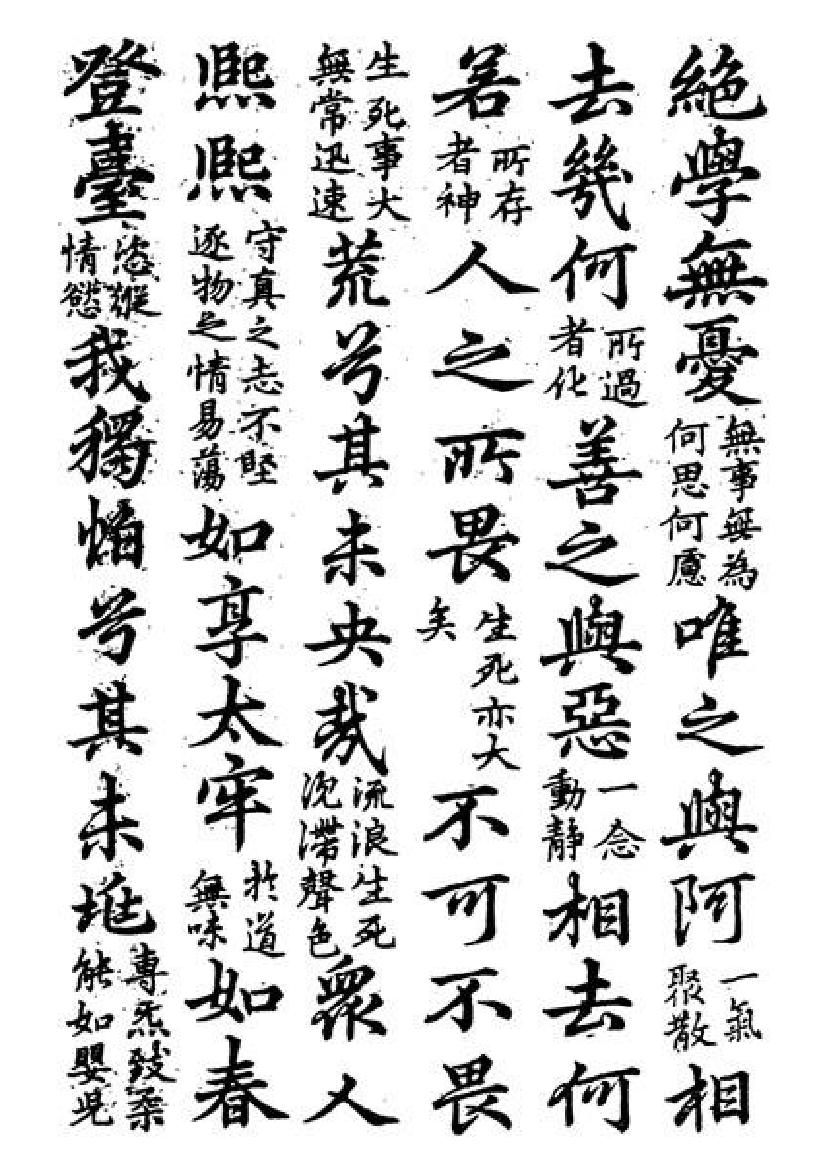 絕學無憂無事無為何思何慮唯之與阿一氣聚散相
去幾何所過者化善之與惡一念動靜相去何
若所存者神人之所畏生死亦大矣不可不畏
生死事大無常迅速荒兮其未央哉流浪生死沉滯聲色眾人
熙熙守真之志不堅逐物之情易蕩如享太牢於道無味如春
登臺恣縱情慾我獨怕兮其未兆專炁致柔能如嬰兒